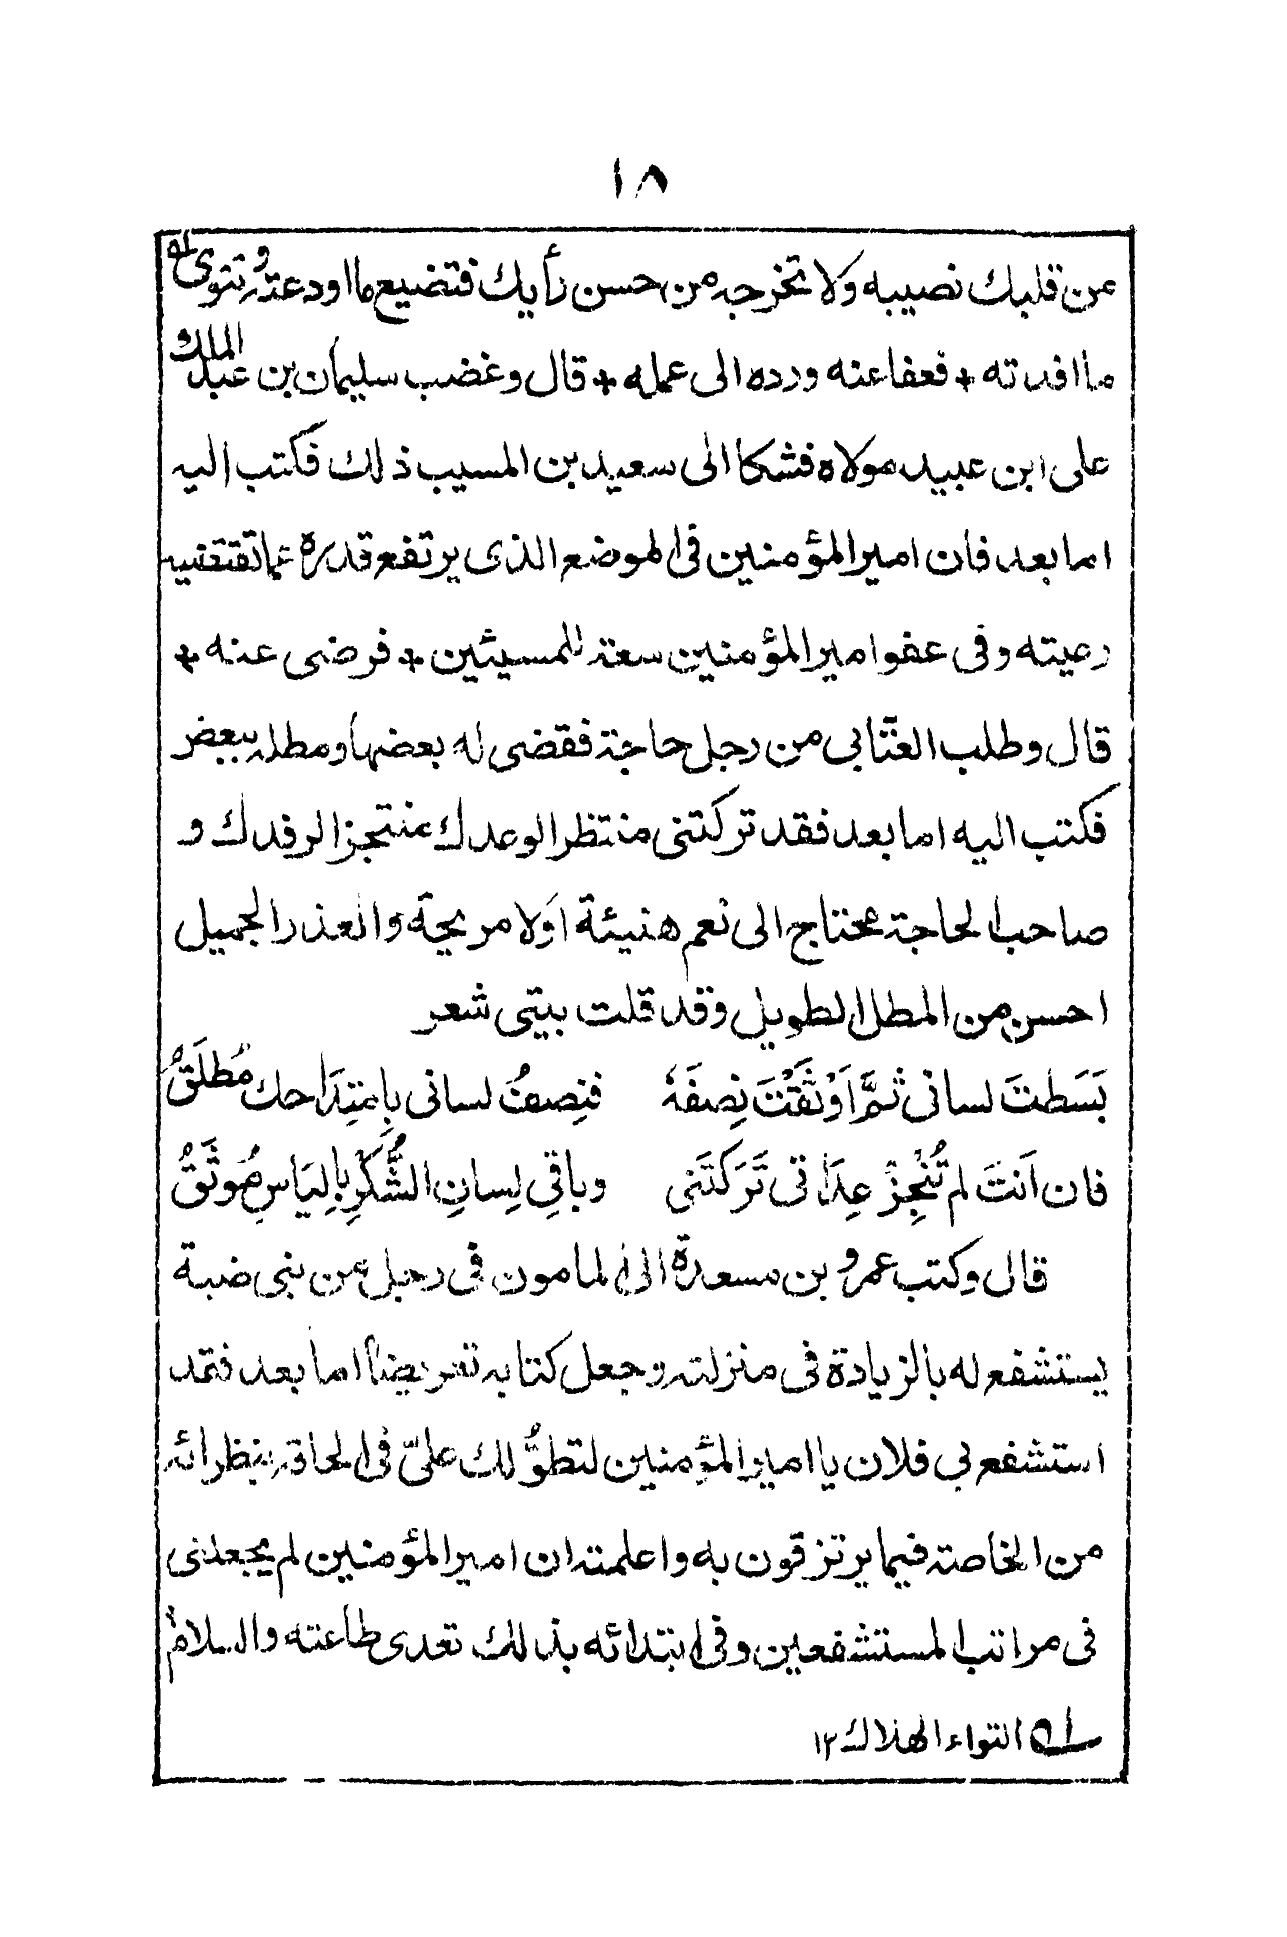 ١٨
من قلبك نصيبه ولا تخرجه من حسن رأيك فتضيع ما اودعته وتتوى
ما افدته + فعفا عنه ورده الى عمله + قال وغضب سليمان بن عبد الملك
على ابن عبيد مولاه فشكا الى سعيد بن المسيب ذلك فكتب اليه
اما بعد فان امير المؤمنين فى الموضع الذى يرتفع قدره عما تقتضيه
رعيته وفى عفو امير المؤمنين سعة للمسيئين + فرضى عنه +
قال وطلب العتّابى من رجل حاجة فقضى له بعضها ومطله ببعض
فكتب اليه اما بعد فقد تركتنى منتظرا لوعدك منتجزا لرفدك و
صاحب الحاجة محتاج الى نعم هنيئة اولا مريحة والعذر الجميل
احسن من المطل الطويل وقد قلت بيتى شعر
بَسَطتَ لسانى ثمَّ اَوْثَقْتَ نِصفَهٗ فنِصفُ لسانى بامتِدَاحك مُطلَقُ
فان اَنتَ لم تُنْجِزْ عِدَاتى تَرَكتَنى وباقِى لِسانِ الشُّكْرِ بالِيَاسِ مُوثَقُ
قال وكتب عمرو بن مسعدة الى المامون فى رجل من بنى ضبة
يستشفع له بالزيادة فى منزلته وجعل كتابه تعريضاً اما بعد فقد
استشفع بى فلان يا امير المؤمنين لتطوُّلك علىّ فى الحاقه بنظرائه
من الخاصة فيما يرتزقون به واعلمته ان امير المؤمنين لم يجعلنى
فى مراتب المستشفعين وفى ابتدائه بذلك تعدى طاعته والسلام
له التواء الهلاك ١٢